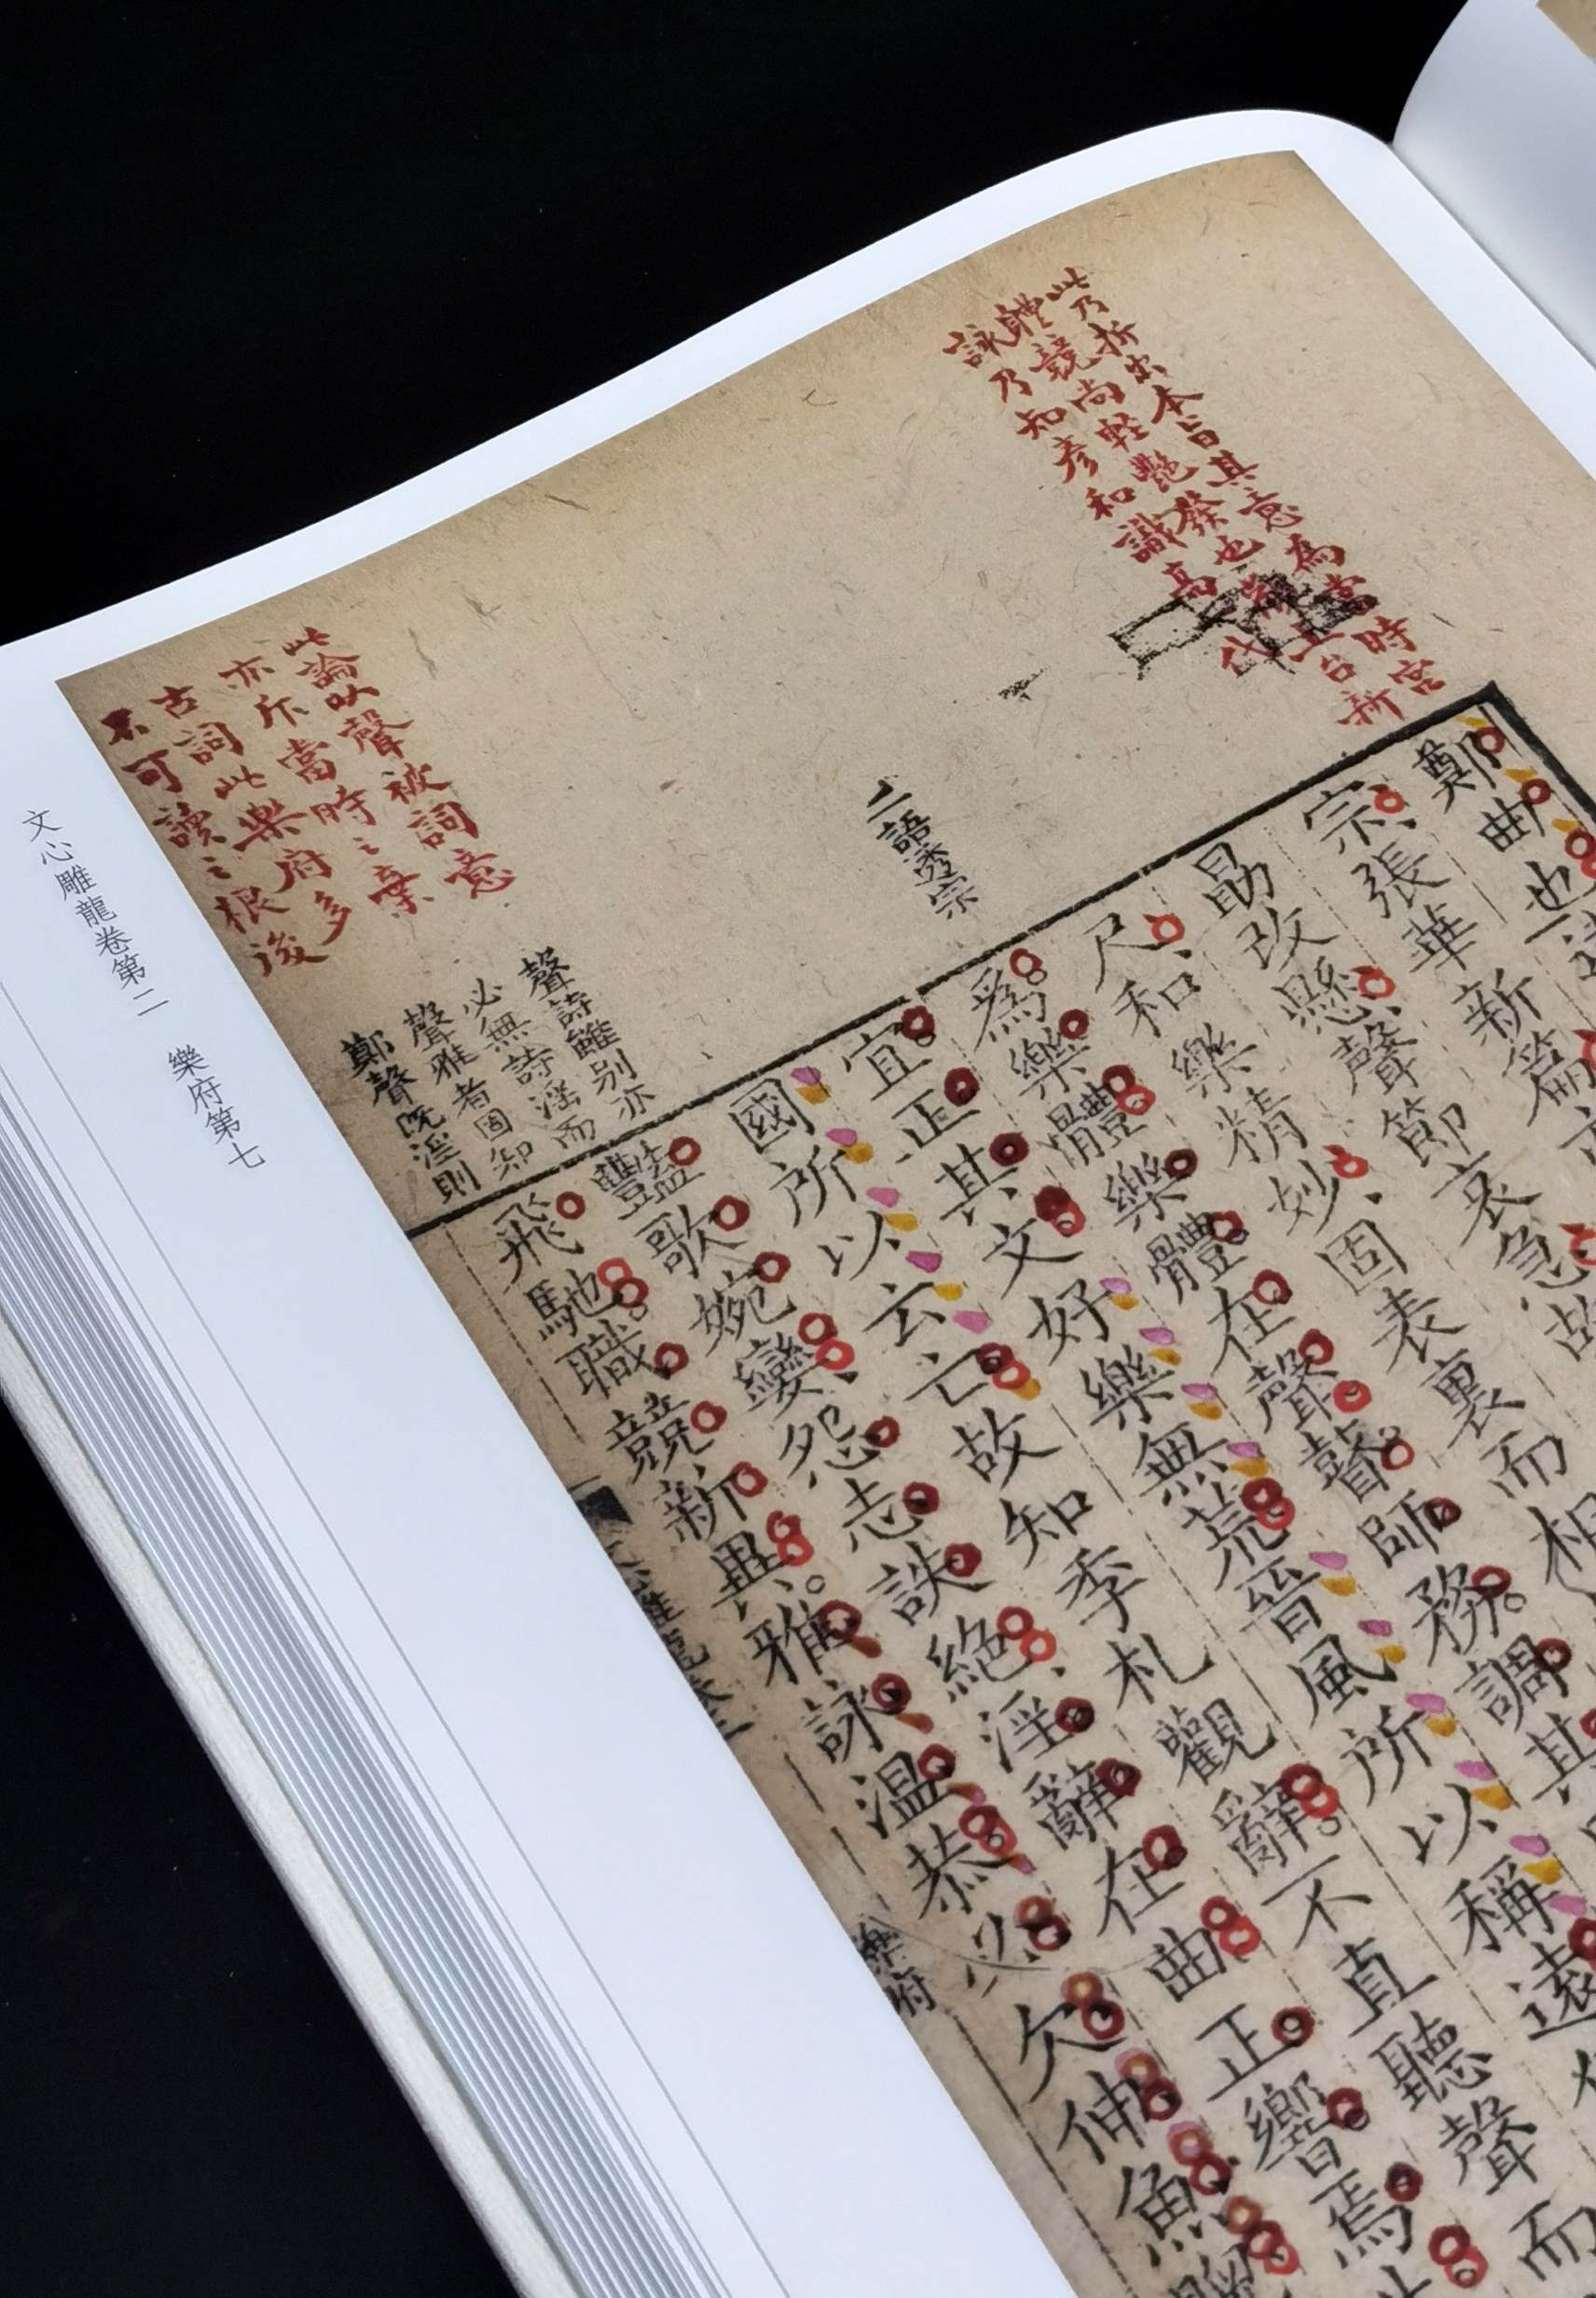 此乃折出本旨其意為當時宮
體競尚輕艷發也觀玉台新
詠乃知彥和識高
二語透宗
此論以聲被詞意
亦斥當時之棄
古詞此樂府多
不可讀之根後
聲詩雖別亦
必無詩淫而
聲雅者固知
鄭聲既淫則
鄭曲也
宗張華新篇亦
勗改懸聲節哀急故
尺和樂精妙固表裏而相
為樂體樂體在聲瞽師務調其
宜正其文好樂無荒晉風所以稱遠
國所以云亡故知季札觀辭不直聽聲而
豔歌婉孌怨志詄絕淫辭在曲正響焉
飛馳職競新異雅詠溫恭必欠伸魚
樂府
文心雕龍卷第二 樂府第七